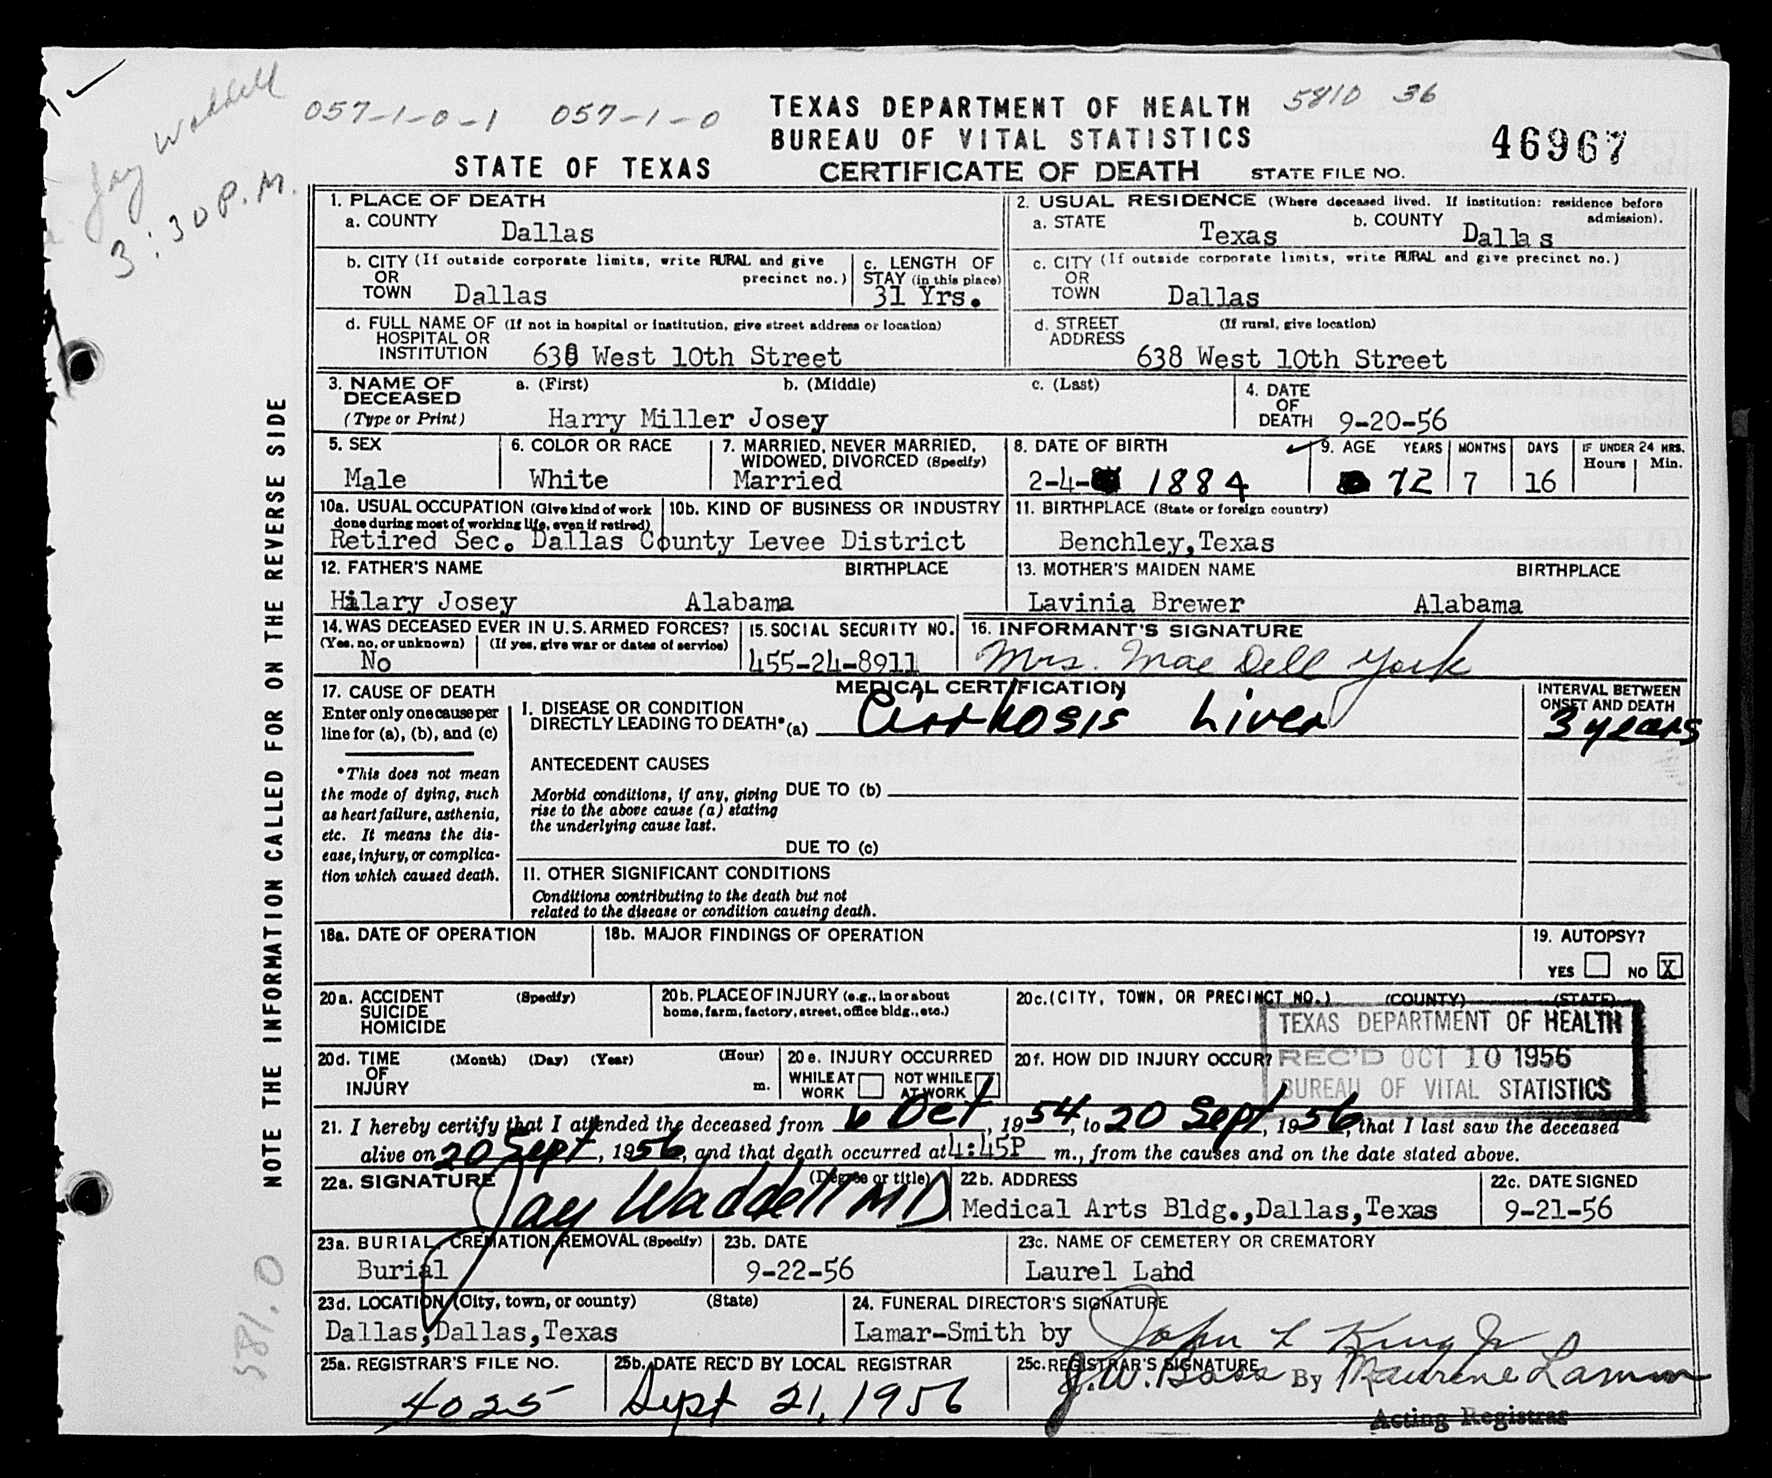 Jay Waddell
3:30 P.M.
057-1-0-1 057-1-0
TEXAS DEPARTMENT OF HEALTH
5810 36
BUREAU OF VITAL STATISTICS
46967
STATE OF TEXAS
CERTIFICATE OF DEATH
STATE FILE NO.
NOTE THE INFORMATION CALLED FOR ON THE REVERSE SIDE
1. PLACE OF DEATH
a. COUNTY Dallas
2. USUAL RESIDENCE (Where deceased lived. If institution: residence before admission).
a. STATE Texas b. COUNTY Dallas
b. CITY (If outside corporate limits, write RURAL and give precinct no.)
OR
TOWN Dallas
c. LENGTH OF
STAY (in this place)
31 Yrs.
c. CITY (If outside corporate limits, write RURAL and give precinct no.)
OR
TOWN Dallas
d. FULL NAME OF (If not in hospital or institution, give street address or location)
HOSPITAL OR
INSTITUTION 638 West 10th Street
d. STREET (If rural, give location)
ADDRESS 638 West 10th Street
3. NAME OF DECEASED
(Type or Print)
a. (First) b. (Middle) c. (Last)
Harry Miller Josey
4. DATE
OF
DEATH 9-20-56
5. SEX
Male
6. COLOR OR RACE
White
7. MARRIED, NEVER MARRIED,
WIDOWED, DIVORCED (Specify)
Married
8. DATE OF BIRTH
2-4- 1884
9. AGE YEARS MONTHS DAYS IF UNDER 24 HRS.
Hours Min.
72 7 16
10a. USUAL OCCUPATION (Give kind of work
done during most of working life, even if retired)
10b. KIND OF BUSINESS OR INDUSTRY
Retired Sec. Dallas County Levee District
11. BIRTHPLACE (State or foreign country)
Benchley,Texas
12. FATHER'S NAME BIRTHPLACE
Hilary Josey Alabama
13. MOTHER'S MAIDEN NAME BIRTHPLACE
Lavinia Brewer Alabama
14. WAS DECEASED EVER IN U.S. ARMED FORCES?
(Yes, no, or unknown) (If yes, give war or dates of service)
No
15. SOCIAL SECURITY NO.
455-24-8911
16. INFORMANT'S SIGNATURE
Mrs. Mae Dell York
17. CAUSE OF DEATH
Enter only one cause per
line for (a), (b), and (c)
*This does not mean
the mode of dying, such
as heart failure, asthenia,
etc. It means the dis-
ease, injury, or complica-
tion which caused death.
MEDICAL CERTIFICATION
I. DISEASE OR CONDITION
DIRECTLY LEADING TO DEATH* (a) Cirrhosis Liver
INTERVAL BETWEEN
ONSET AND DEATH
3 years
ANTECEDENT CAUSES
Morbid conditions, if any, giving
rise to the above cause (a) stating
the underlying cause last.
DUE TO (b)
DUE TO (c)
II. OTHER SIGNIFICANT CONDITIONS
Conditions contributing to the death but not
related to the disease or condition causing death.
18a. DATE OF OPERATION
18b. MAJOR FINDINGS OF OPERATION
19. AUTOPSY?
YES NO X
20a. ACCIDENT (Specify)
SUICIDE
HOMICIDE
20b. PLACE OF INJURY (e.g., in or about
home, farm, factory, street, office bldg., etc.)
20c. (CITY, TOWN, OR PRECINCT NO.) (COUNTY) (STATE)
TEXAS DEPARTMENT OF HEALTH
REC'D OCT 10 1956
BUREAU OF VITAL STATISTICS
20d. TIME (Month) (Day) (Year) (Hour)
OF
INJURY m.
20e. INJURY OCCURRED
WHILE AT WORK NOT WHILE AT WORK
20f. HOW DID INJURY OCCUR?
21. I hereby certify that I attended the deceased from 6 Oct, 1954, to 20 Sept, 1956, that I last saw the deceased
alive on 20 Sept, 1956, and that death occurred at 4:45P m., from the causes and on the date stated above.
22a. SIGNATURE (Degree or title)
Jay Waddell MD
22b. ADDRESS
Medical Arts Bldg.,Dallas,Texas
22c. DATE SIGNED
9-21-56
23a. BURIAL, CREMATION, REMOVAL (Specify)
Burial
23b. DATE
9-22-56
23c. NAME OF CEMETERY OR CREMATORY
Laurel Lahd
23d. LOCATION (City, town, or county) (State)
Dallas,Dallas,Texas
24. FUNERAL DIRECTOR'S SIGNATURE
Lamar-Smith by John L King Jr
25a. REGISTRAR'S FILE NO.
4025
25b. DATE REC'D BY LOCAL REGISTRAR
Sept 21, 1956
25c. REGISTRAR'S SIGNATURE
J.W. Bass By Maurene
Acting Registrar
581.0